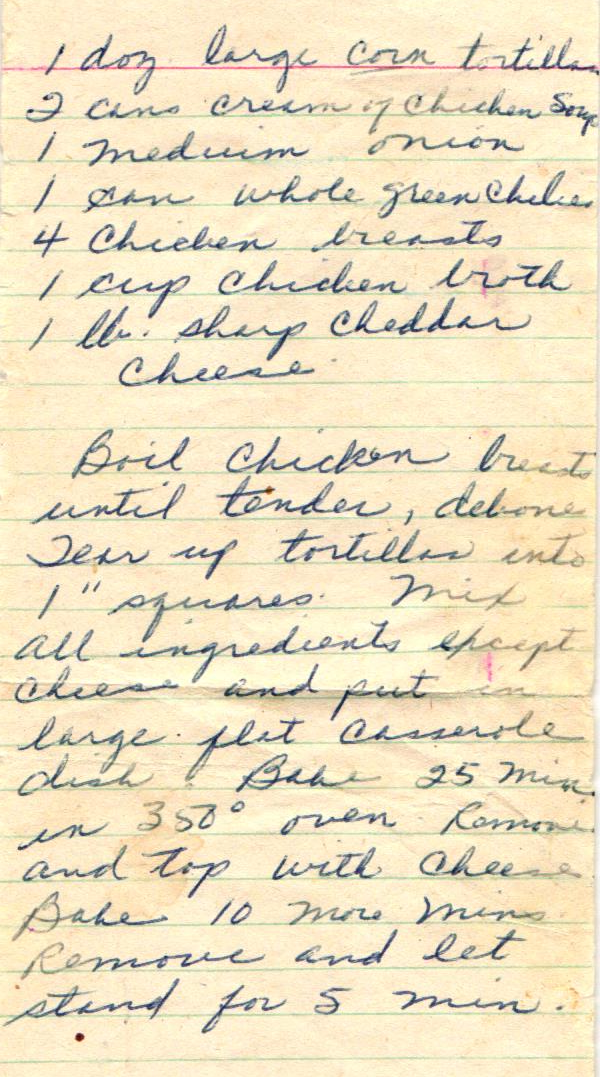 1 doz large corn tortillas
2 cans cream of chicken Soup
1 meduim onion
1 can whole green chilies
4 Chicken breasts
1 cup chicken broth
1 lb. sharp cheddar
cheese.
Boil chicken breasts
until tender, debone
Tear up tortillas into
1" squares. Mix
all ingredients except
cheese and put in
large flat casserole
dish. Bake 25 min.
in 350° oven Remove
and top with cheese
Bake 10 more mins
Remove and let
stand for 5 min.